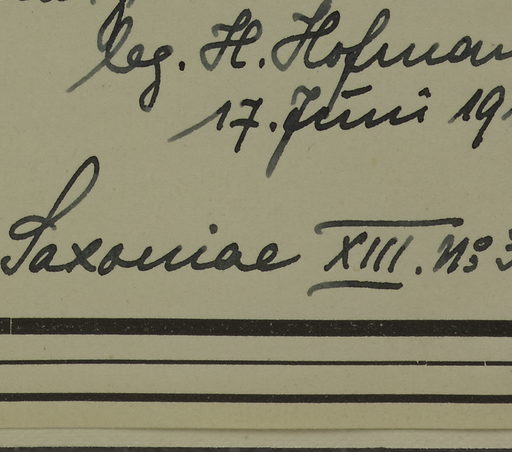 leg. H. Hofman
17. Juni 19
Saxoniae XIII. No 3